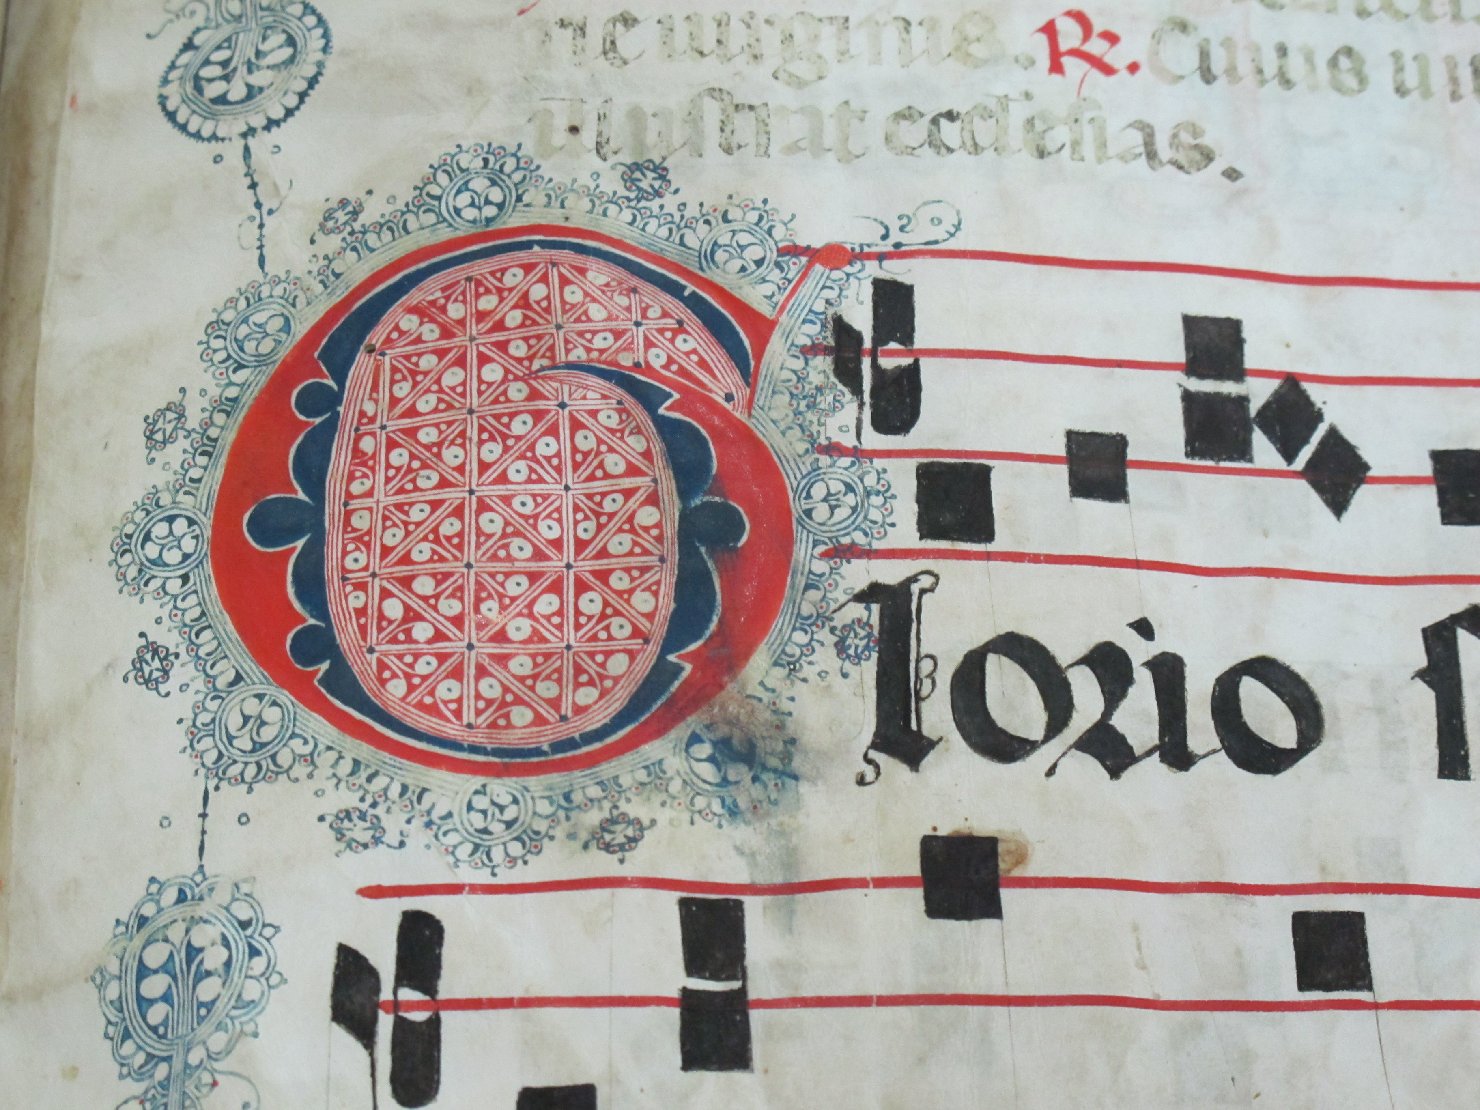 rie uirginis. R. Cuius ui
illustrat ecclesias.
Glorio s